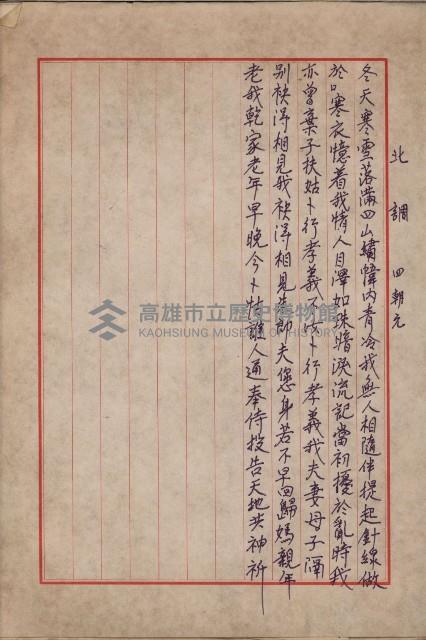 北調 四朝元
冬天寒雪落滿四山繡幃內青冷我無人相隨伴提起針線做
於口寒衣憶着我情人目滓如珠暗淚流記當初擾於亂時我
亦曾棄子扶姑卜行孝義不成卜行孝義我夫妻母子隔
別袂得相見我袂得相見告郎夫您身若不早回歸媽親年
老我乾家老年早晚今卜牡誰人通奉侍投告天地共神祈
高雄市立歷史博物館
KAOHSIUNG MUSEUM OF HISTORY